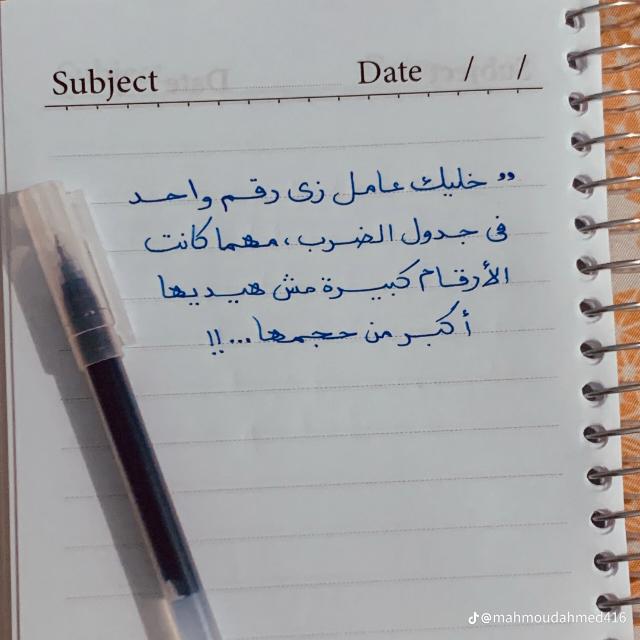 Subject Date / /
,, خليك عامل زى رقم واحد
فى جدول الضرب، مهما كانت
الأرقام كبيرة مش هيديها
أكبر من حجمها...!!
@mahmoudahmed416